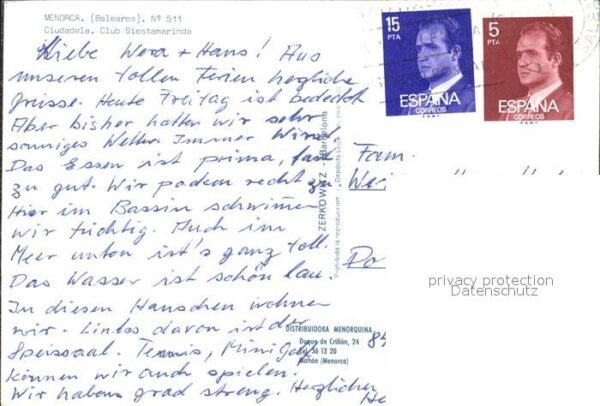 MENORCA. (Baleares). Nº 511
Ciudadela. Club Siestamarinda
Liebe Wera + Hans! Aus
unseren tollen Ferien herzliche
Grüsse. Heute Freitag ist bedeckt
Aber bisher hatten wir sehr
sonniges Wetter. Immer Wind
Das Essen ist prima, fast
zu gut. Wir padeln recht zu
Hier im Bassin schwimmen
wir tüchtig. Auch im
Meer unten ist's ganz toll.
Das Wasser ist schön lau.
In diesen Häuschen wohnen
wir. Links davon ist der
Speissaal. Tennis, Mini Golf
können wir auch spielen.
Wir habens grad streng. Herzlichen
15
PTA
ESPAÑA
CORREOS
F.N.M.T.
5
PTA
ESPAÑA
CORREOS
F.N.M.T.
ZERKOWITZ - Barcelona
Prohibida la reproducción
Depósito Legal
Fam.
We
Do
84
He
privacy protection
Datenschutz
DISTRIBUIDORA MENORQUINA
Duque de Crillón, 24
Tel. 36 13 20
Mahón (Menorca)